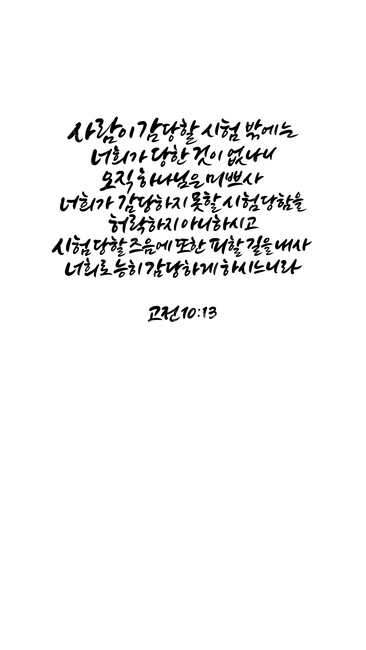 사람이 감당할 시험 밖에는
너희가 당한 것이 없나니
오직 하나님은 미쁘사
너희가 감당하지 못할 시험 당함을
허락하지 아니하시고
시험 당할 즈음에 또한 피할 길을 내사
너희로 능히 감당하게 하시느니라
고전 10:13